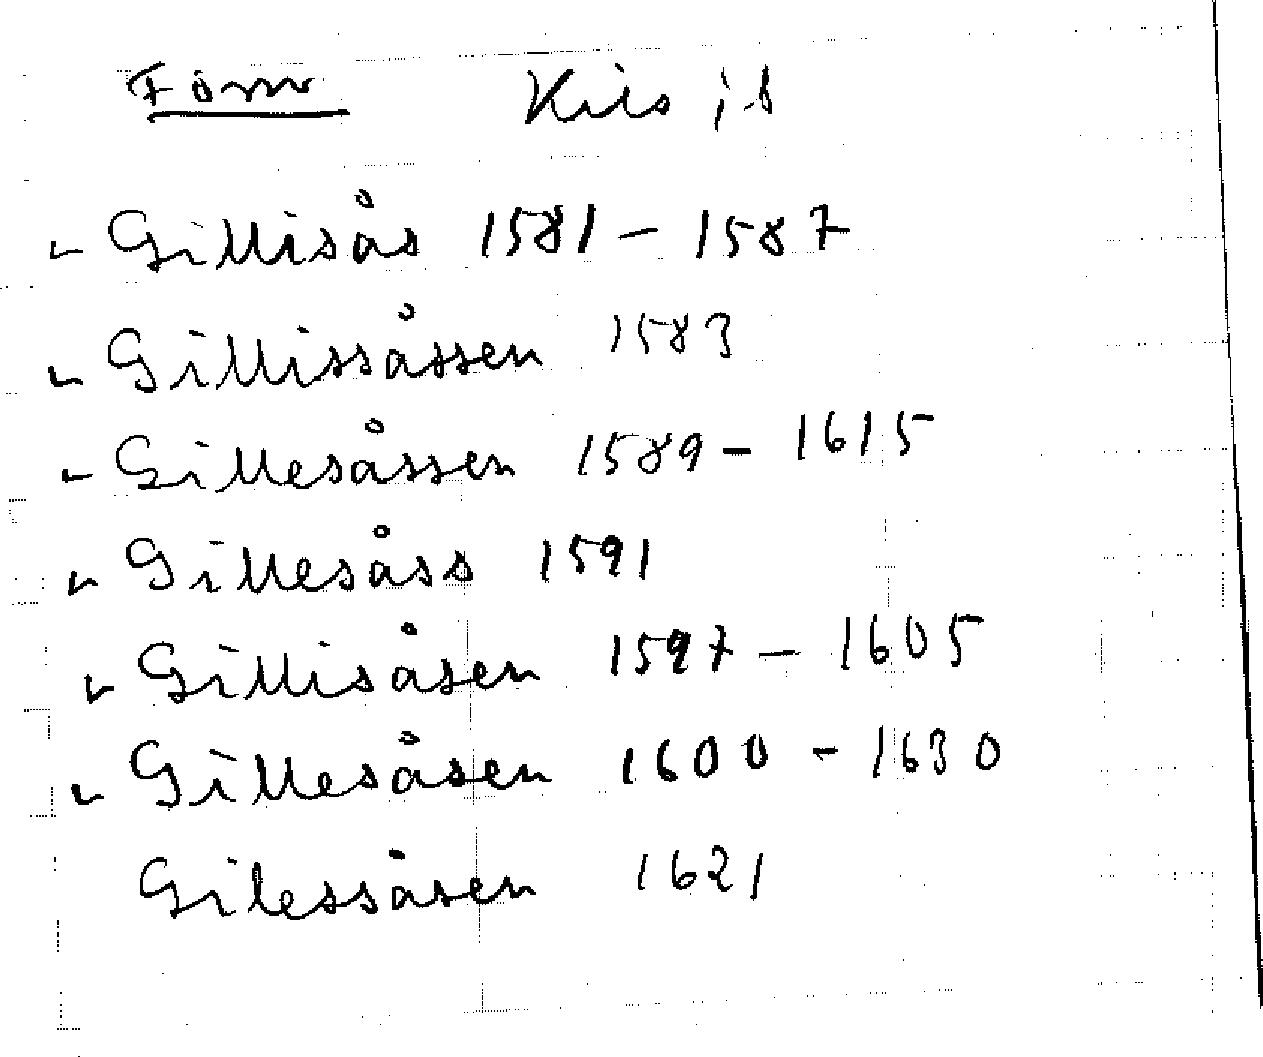 Förn Kils jb
Gillisås 1581 - 1587
Gillissåssen 1583
Gillesåssen 1589 - 1615
Gillesåss 1591
Gillisåsen 1597 - 1605
Gillesåsen 1600 - 1630
Gilessåsen 1621